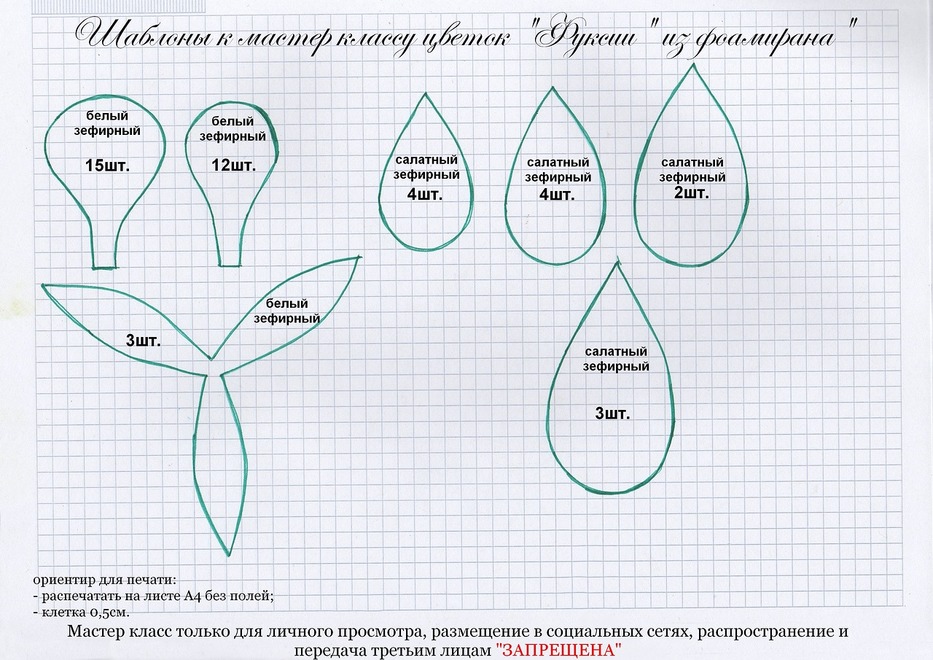 Шаблоны к мастер классу цветок "Фуксии" из фоамирана "
белый
зефирный
15шт.
белый
зефирный
12шт.
салатный
зефирный
4шт.
салатный
зефирный
4шт.
салатный
зефирный
2шт.
3шт.
белый
зефирный
салатный
зефирный
3шт.
ориентир для печати:
- распечатать на листе А4 без полей;
- клетка 0,5см.
Мастер класс только для личного просмотра, размещение в социальных сетях, распространение и
передача третьим лицам "ЗАПРЕЩЕНА"